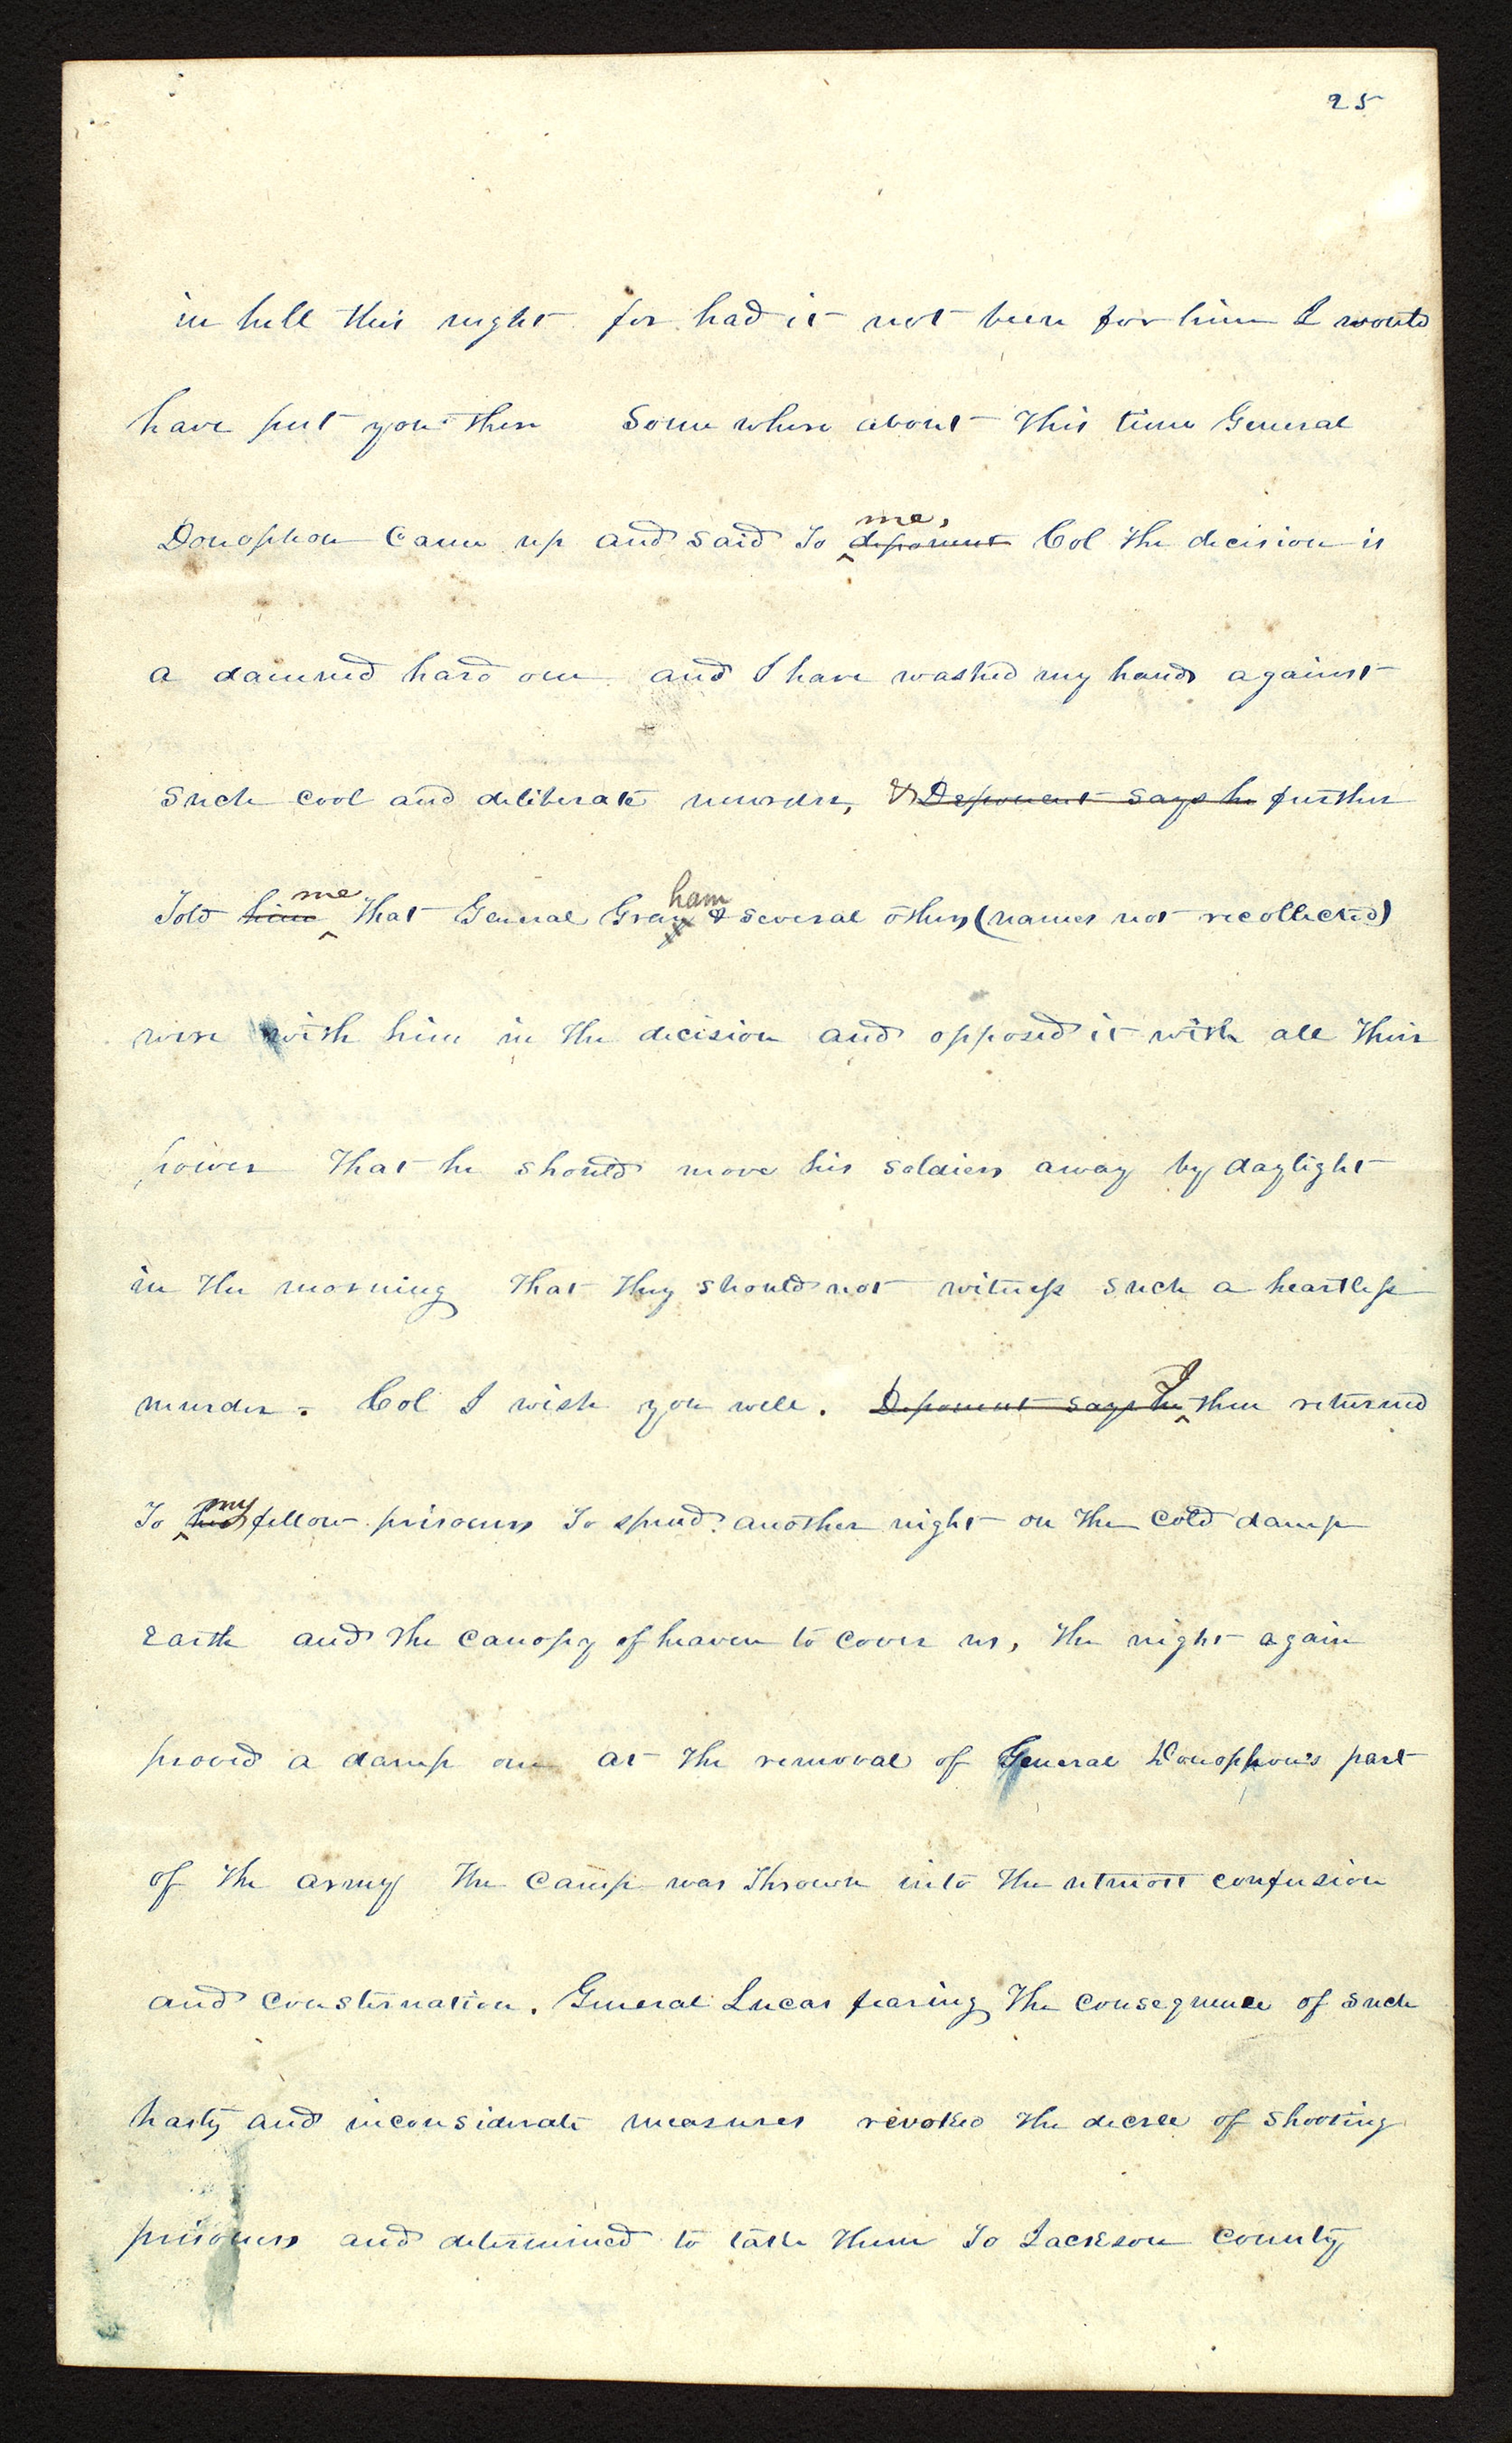 25
in hell this night for had it not been for him I would
have put you there Some where about This time General
me,
Donophon Came up and said To deponent Col The decision is
a damned hard one and I have washed my hands against
Such cool and deliberate murder, & Deponent says he further
me ham
Told him That General Gray & several others (names not recollected)
were with him in the decision and opposed it with all Their
power That he should move his soldiers away by daylight
in The morning That They should not witness such a heartless
I
murder. Col I wish you well. Deponent says he then returned
my
To his fellow prisoners To spend another night on The cold damp
Earth and The canopy of heaven to cover us, The night again
proved a damp one at The removal of General Donophon's part
of The army The camp was Thrown into The utmost confusion
and consternation. General Lucas fearing The consequence of such
hasty and inconsiderate measures revoked The decree of shooting
prisoners and determined to take Them To Jackson county